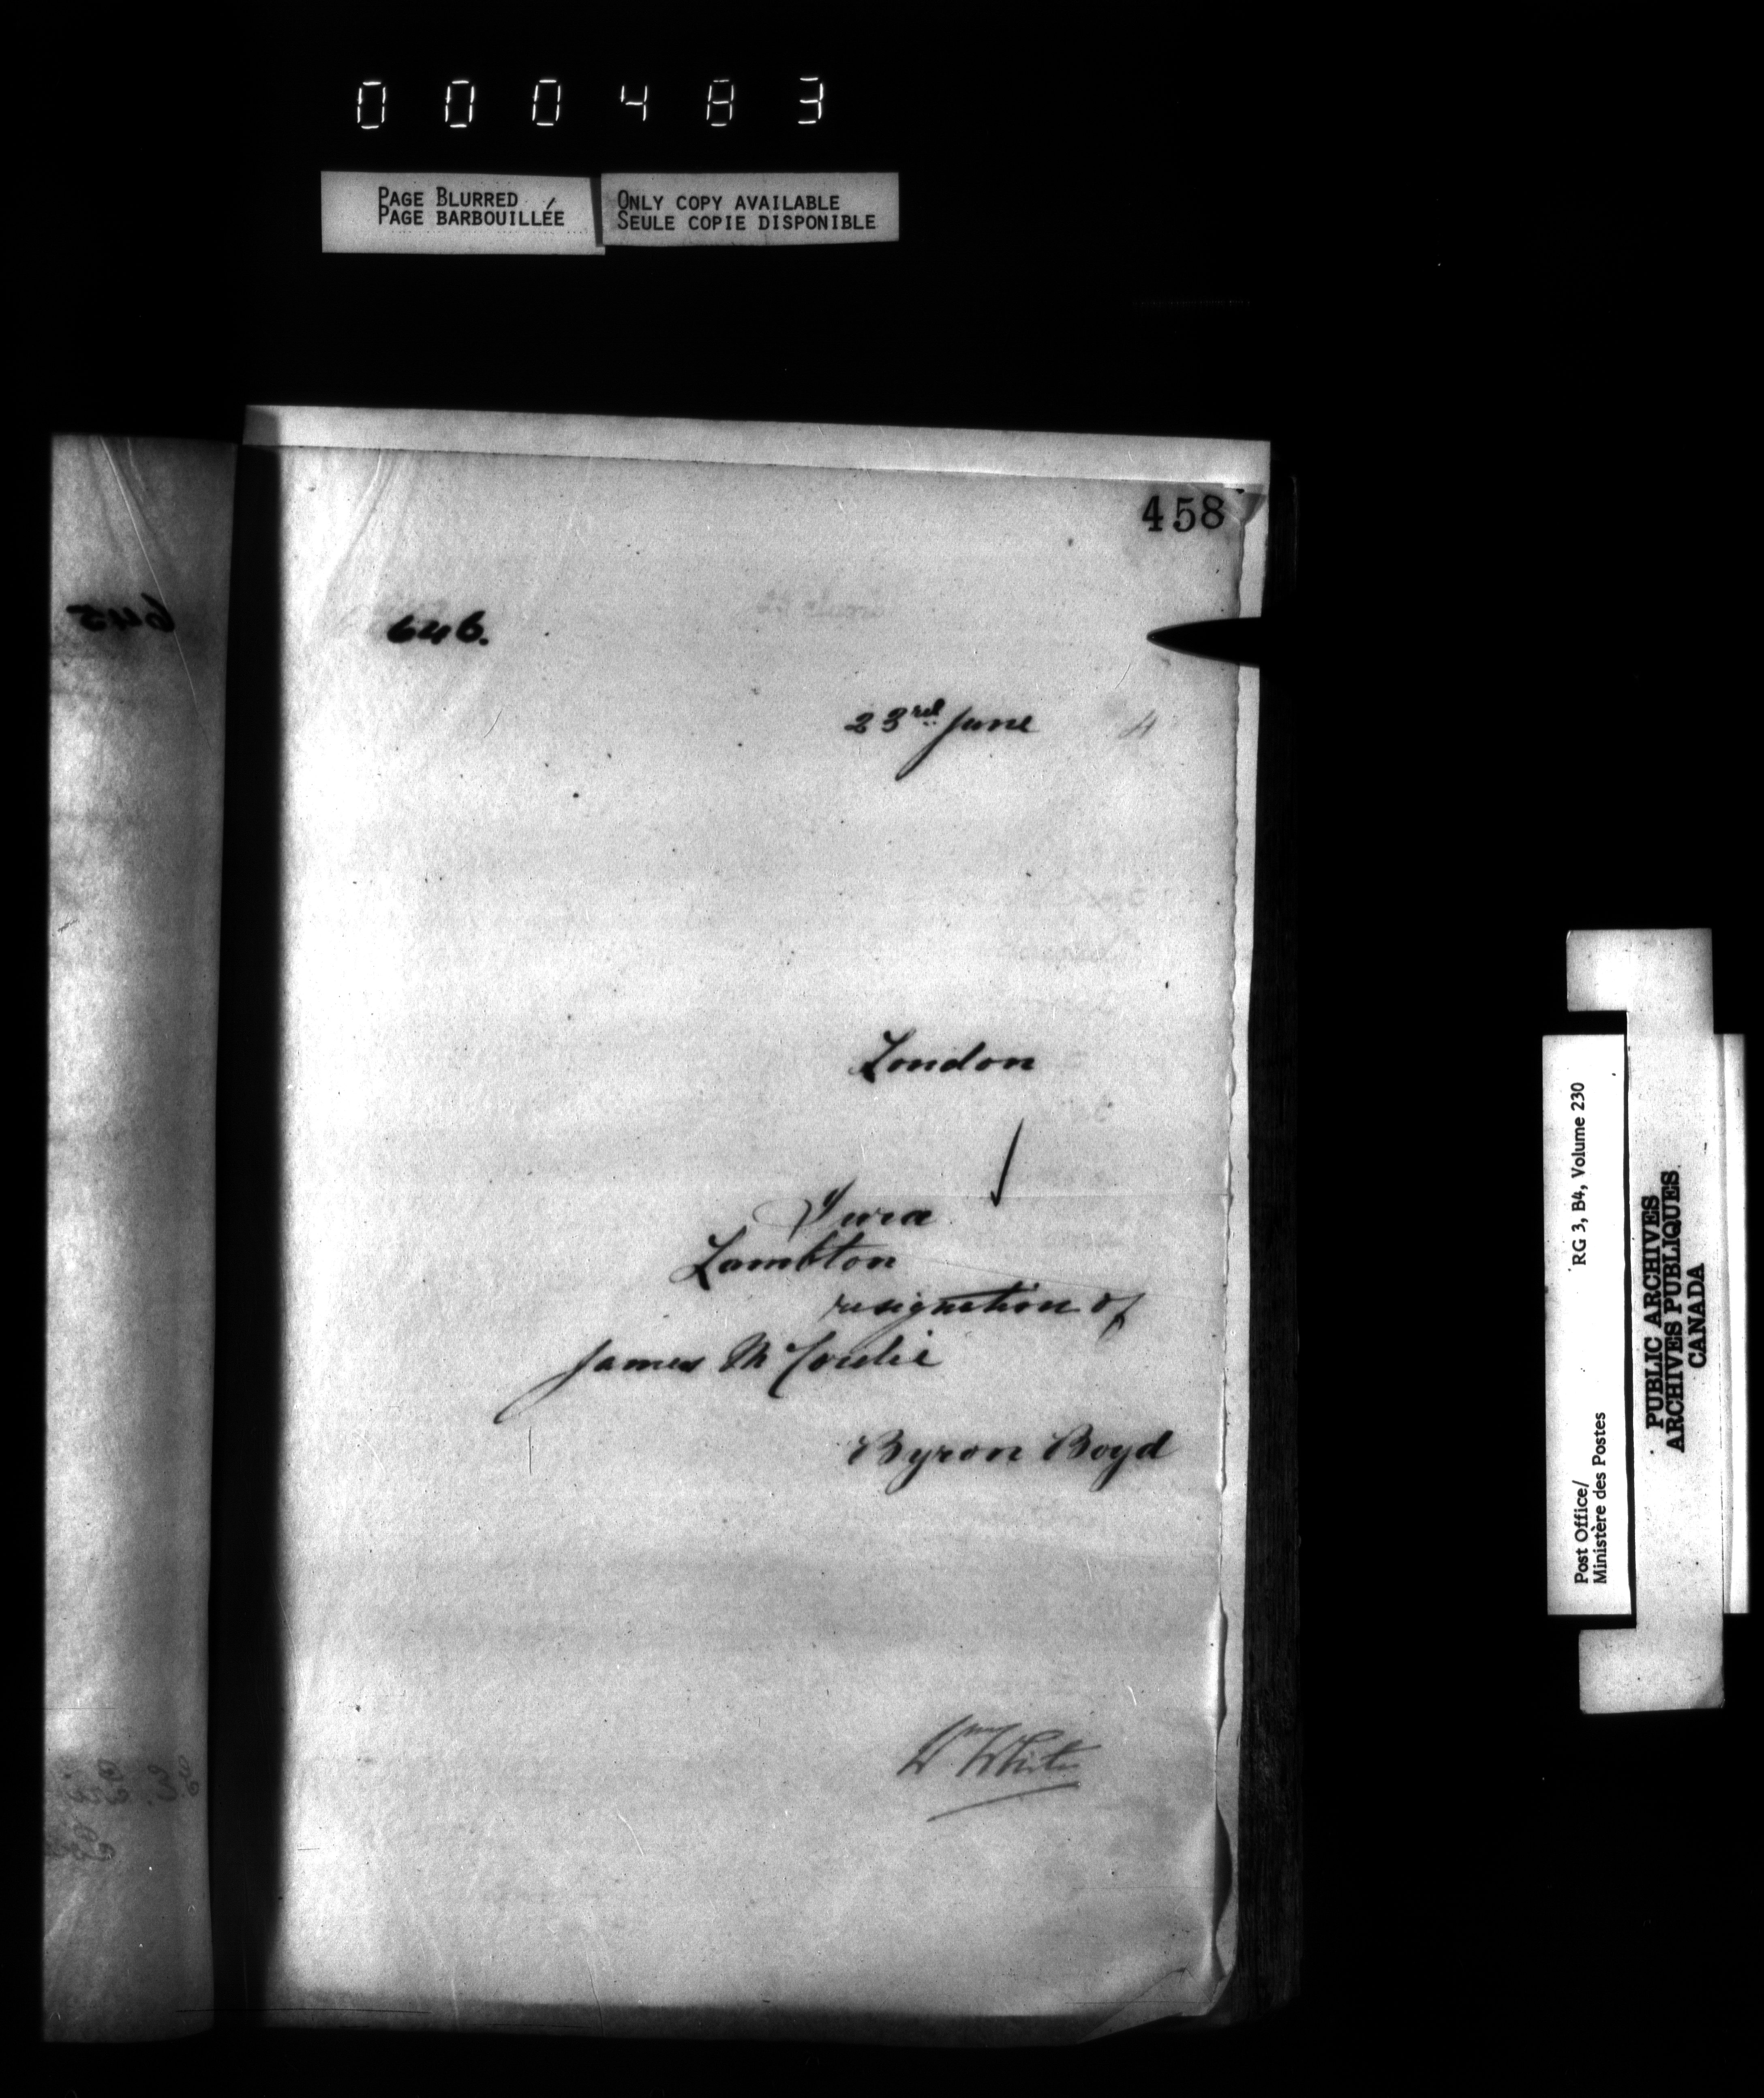 000483
PAGE BLURRED
PAGE BARBOUILLÉE
ONLY COPY AVAILABLE
SEULE COPIE DISPONIBLE
458
645
646.
23rd June
4
London
Jura
Lambton
resignation of
James McCordie
Byron Boyd
Wm White
Post Office/
Ministère des Postes
RG 3, B4, Volume 230
PUBLIC ARCHIVES
ARCHIVES PUBLIQUES
CANADA